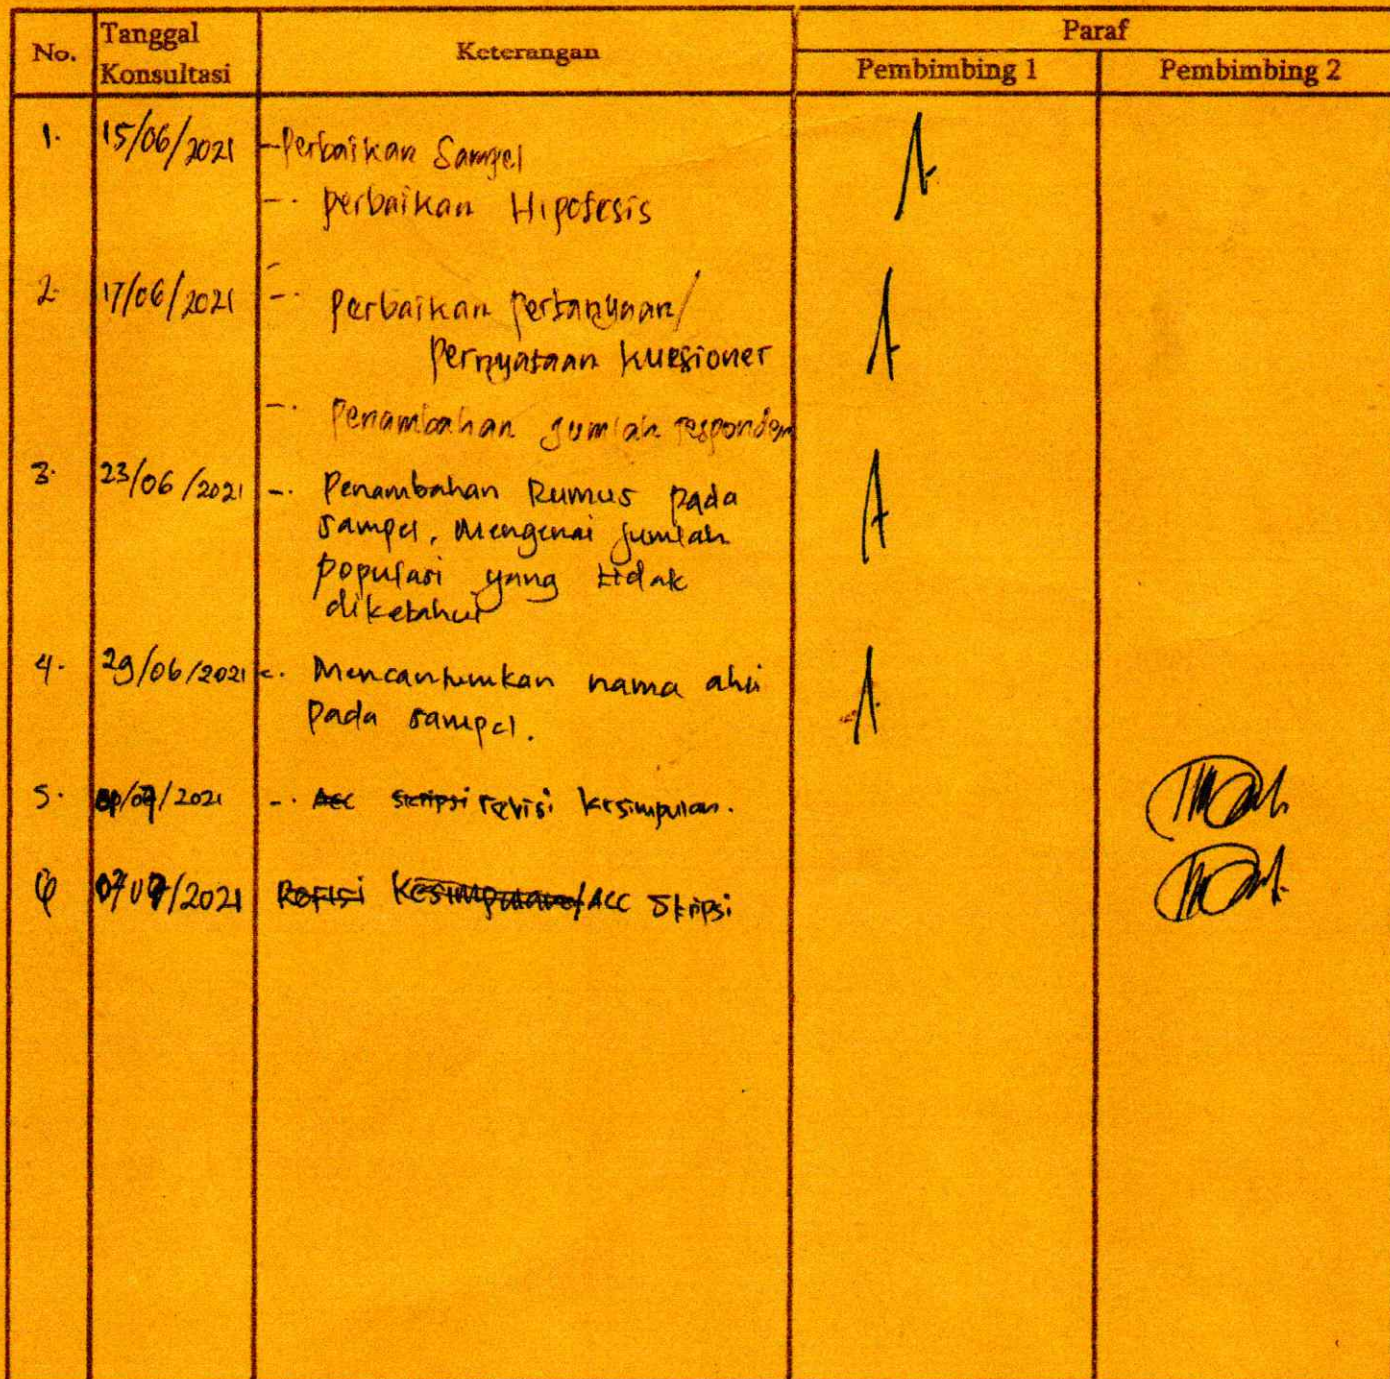 No. Tanggal Konsultasi Keterangan Paraf
Pembimbing 1 Pembimbing 2
1. 15/06/2021 - Perbaikan Sampel
-. perbaikan Hipotesis
2. 17/06/2021 -. perbaikan pertanyaan/
pernyataan kuesioner
-. Penambahan jumlah responden
3. 23/06/2021 -. Penambahan Rumus pada
sampel, Mengenai jumlah
populasi yang tidak
diketahui
4. 29/06/2021 -. Mencantumkan nama ahli
pada sampel.
5. /2021 -. Acc skripsi revisi kesimpulan.
6 07/07/2021 Refisi Kesimpulan/ACC Skripsi